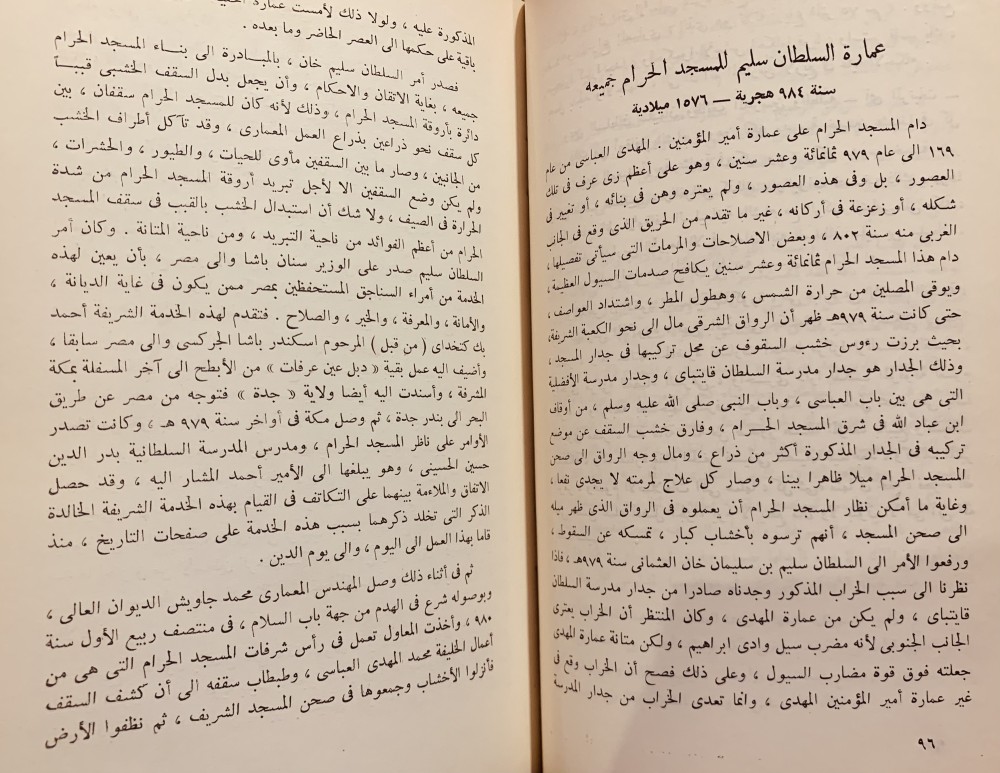 عمارة السلطان سليم للمسجد الحرام جميعه
سنة ٩٨٤ هجرية — ١٥٧٦ ميلادية
دام المسجد الحرام على عمارة أمير المؤمنين . المهدى العباسى من عام
١٦٩ الى عام ٩٧٩ ثمانمائة وعشر سنين ، وهو على أعظم زى عرف فى تلك
العصور ، بل وفى هذه العصور ، ولم يعتره وهن فى بنائه ، أو تغيير فى
شكله ، أو زعزعة فى أركانه ، غير ما تقدم من الحريق الذى وقع فى الجانب
الغربى منه سنة ٨٠٢ ، وبعض الاصلاحات والمرمات التى سيأتى تفصيلها ،
دام هذا المسجد الحرام ثمانمائة وعشر سنين يكافح صدمات السيول العظيمة ،
ويوقى المصلين من حرارة الشمس ، وهطول المطر ، واشتداد العواصف ،
حتى كانت سنة ٩٧٩هـ ظهر أن الرواق الشرقى مال الى نحو الكعبة الشريفة ،
بحيث برزت رءوس خشب السقوف عن محل تركيبها فى جدار المسجد ،
وذلك الجدار هو جدار مدرسة السلطان قايتباى ، وجدار مدرسة الأفضلية
التى هى بين باب العباسى ، وباب النبى صلى الله عليه وسلم ، من أوقاف
ابن عباد الله فى شرق المسجد الحـــرام ، وفارق خشب السقف عن موضع
تركيبه فى الجدار المذكورة أكثر من ذراع ، ومال وجه الرواق الى صحن
المسجد الحرام ميلا ظاهرا بينا ، وصار كل علاج لمرمته لا يجدى نفعا ،
وغاية ما أمكن نظار المسجد الحرام أن يعملوه فى الرواق الذى ظهر ميله
الى صحن المسجد ، أنهم ترسوه بأخشاب كبار ، تمسكه عن السقوط ،
ورفعوا الأمر الى السلطان سليم بن سليمان خان العثمانى سنة ٩٧٩هـ ، فاذا
نظرنا الى سبب الخراب المذكور وجدناه صادرا من جدار مدرسة السلطان
قايتباى ، ولم يكن من عمارة المهدى ، وكان المنتظر أن الخراب يعترى
الجانب الجنوبى لأنه مضرب سيل وادى ابراهيم ، ولكن متانة عمارة المهدى
جعلته فوق قوة مضارب السيول ، وعلى ذلك فصح أن الخراب وقع فى
غير عمارة أمير المؤمنين المهدى ، وانما تعدى الخراب من جدار المدرسة
٩٦
المذكورة عليه ، ولولا ذلك لأمست عمارة
باقية على حكمها الى العصر الحاضر وما بعده .
فصدر أمر السلطان سليم خان ، بالمبــادرة الى بنــاء المسجد الحرام
جميعه ، بغاية الاتقان والاحكام ، وأن يجعل بدل السقف الخشبى قببــاً
دائرة بأروقة المسجد الحرام ، وذلك لأنه كان للمسجد الحرام سقفان ، بين
كل سقف نحو ذراعين بذراع العمل المعمارى ، وقد تآكل أطراف الخشب
من الجانبين ، وصار ما بين السقفين مأوى للحيات ، والطيور ، والحشرات ،
ولم يكن وضع السقفين الا لأجل تبريد أروقة المسجد الحرام من شدة
الحرارة فى الصيف ، ولا شك أن استبدال الخشب بالقبب فى سقف المسجد
الحرام من أعظم الفوائد من ناحية التبريد ، ومن ناحية المتانة . وكان أمر
السلطان سليم صدر على الوزير سنان باشا والى مصر ، بأن يعين لهذه
الخدمة من أمراء السناجق المستحفظين بمصر ممن يكون فى غاية الديانة ،
والأمانة ، والمعرفة ، والخير ، والصلاح . فتقدم لهذه الخدمة الشريفة أحمد
بك كتخداى ( من قبل ) المرحوم اسكندر باشا الجركسى والى مصر سابقا ،
وأضيف اليه عمل بقية « دبل عين عرفات » من الأبطح الى آخر المسفلة بمكة
المشرفة ، وأسندت اليه أيضا ولاية « جدة » فتوجه من مصر عن طريق
البحر الى بندر جدة ، ثم وصل مكة فى أواخر سنة ٩٧٩ هـ ، وكانت تصدر
الأوامر على ناظر المسجد الحرام ، ومدرس المدرسة السلطانية بدر الدين
حسين الحسينى ، وهو يبلغها الى الأمير أحمد المشار اليه ، وقد حصل
الاتفاق والملاءمة بينهما على التكاتف فى القيام بهذه الخدمة الشريفة الخالدة
الذكر التى تخلد ذكرهما بسبب هذه الخدمة على صفحات التاريخ ، منذ
قاما بهذا العمل الى اليوم ، والى يوم الدين .
ثم فى أثناء ذلك وصل المهندس المعمارى محمد جاويش الديوان العالى ،
وبوصوله شرع فى الهدم من جهة باب السلام ، فى منتصف ربيع الأول سنة
٩٨٠ ، وأخذت المعاول تعمل فى رأس شرفات المسجد الحرام التى هى من
أعمال الخليفة محمد المهدى العباسى ، وطبطاب سقفه الى أن كشف السقف
فأنزلوا الأخشاب وجمعوها فى صحن المسجد الشريف ، ثم نظفوا الأرض